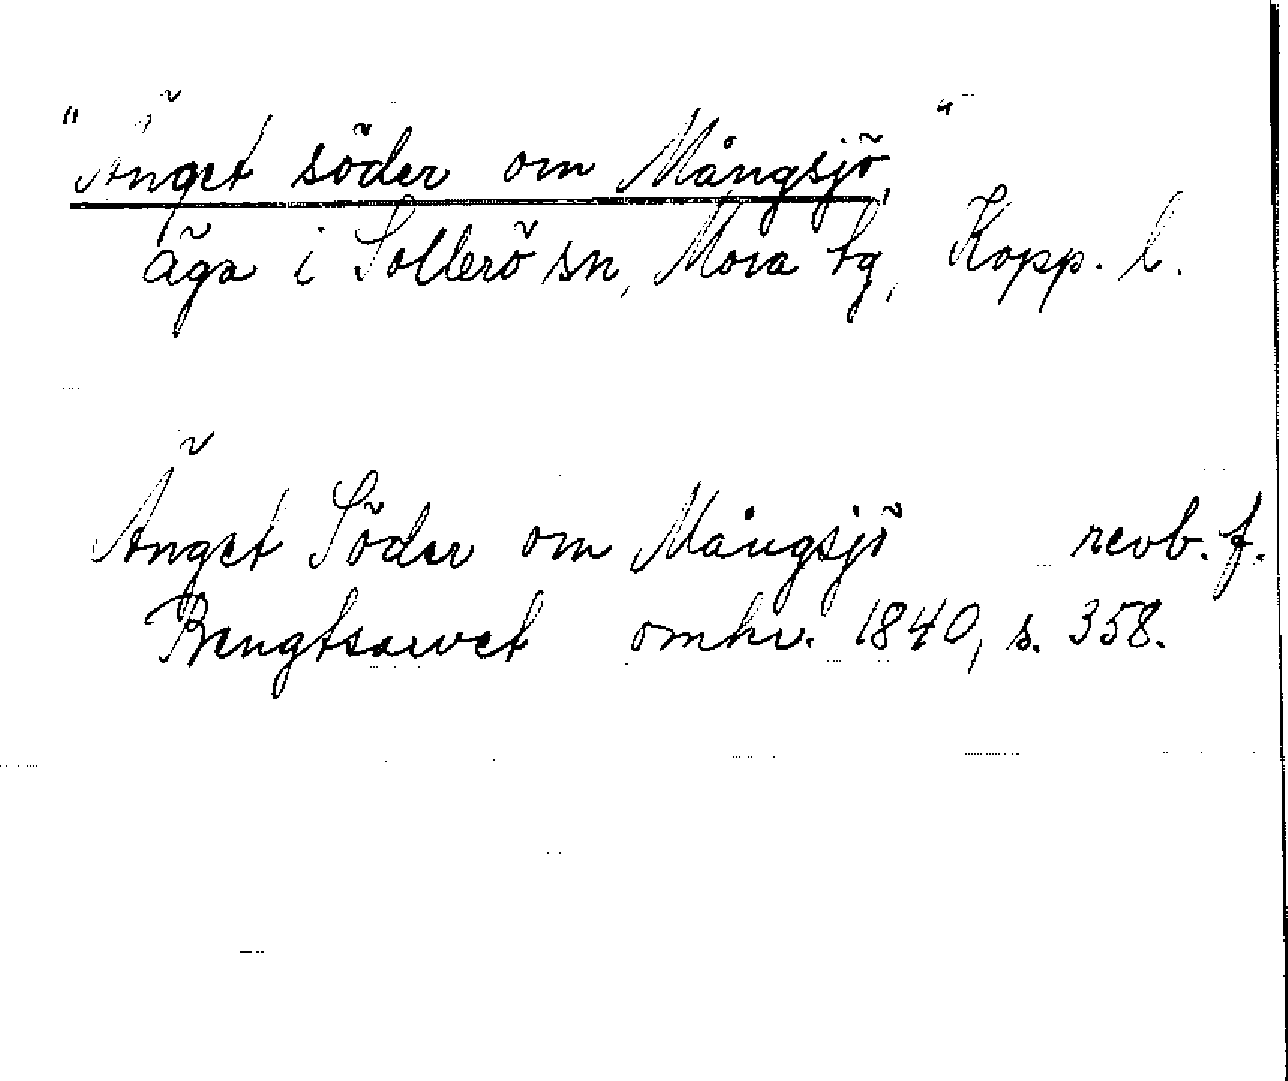 "Änget söder om Mångsjö,"
äga i Sollerö sn, Mora tg, Kopp. l.
Änget Söder om Mångsjö revb. f.
Bengtsarvet omhv. 1840, s. 358.